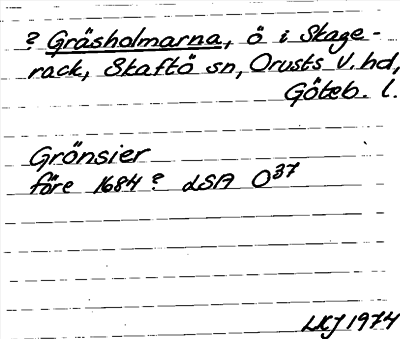 ? Gräsholmarna, ö i Skage-
rack, Skaftö sn, Orusts V. hd,
Göteb. l.
Grönsier
före 1684? LSA O37
LKJ 1974